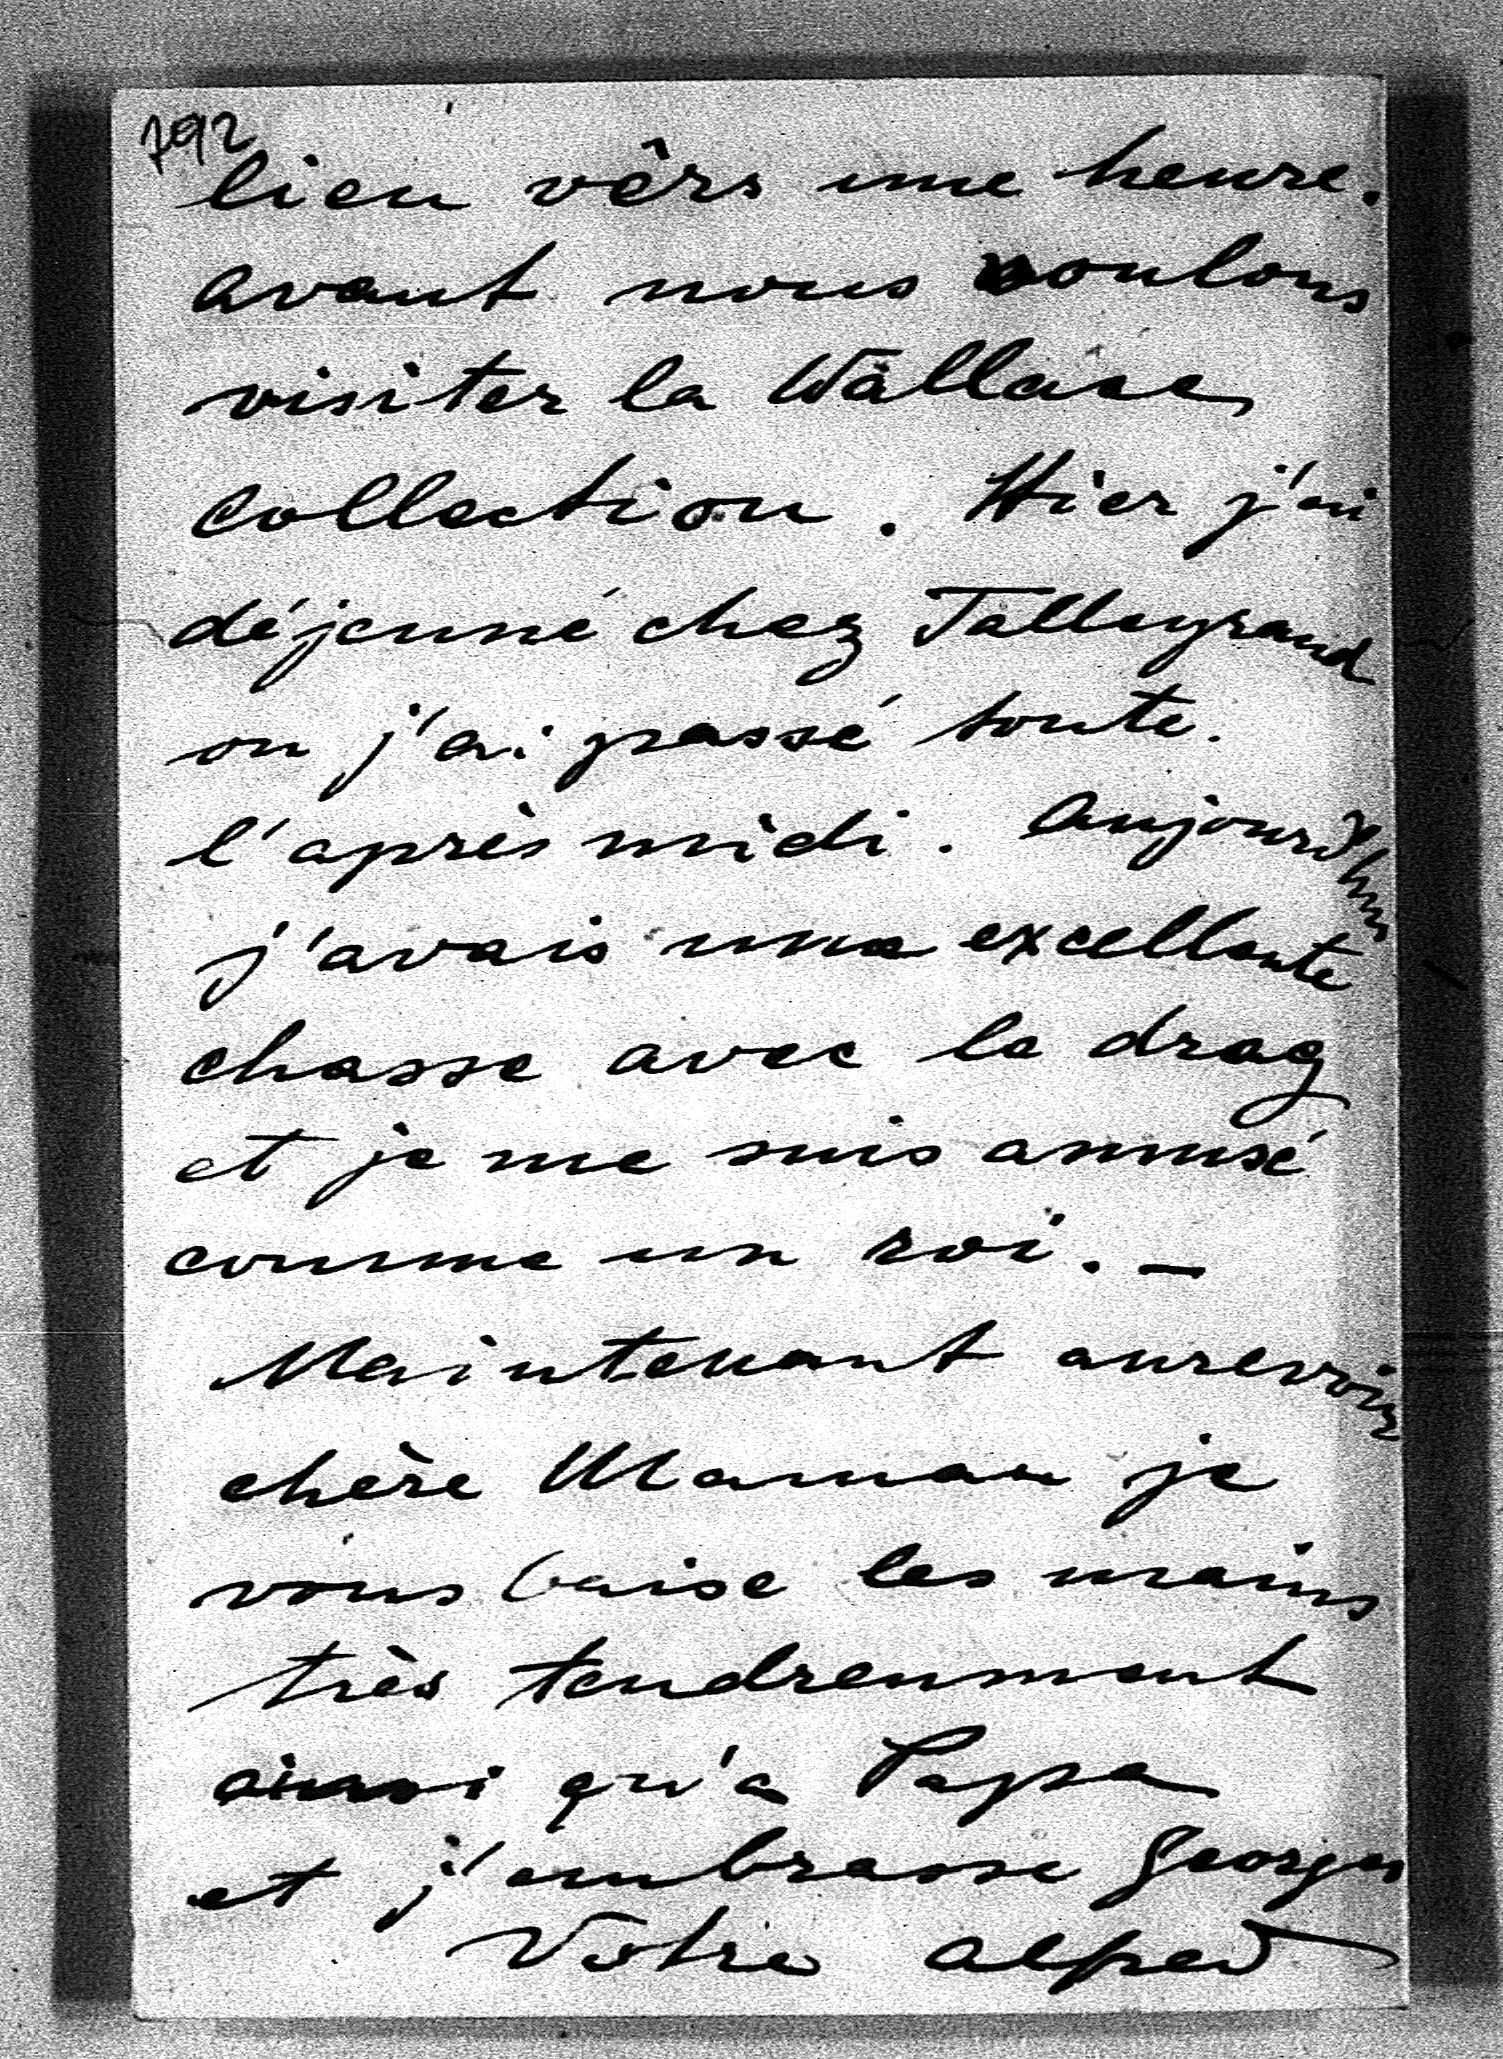 792
lieu vêrs une heure.
avant nous voulons
visiter la Wallace
Collection. Hier j'ai
déjeuné chez Talleyrand
ou j'ai passé toute.
l'après midi. Aujourd'hui
j'avais une excellente
chasse avec le drag
et je me suis amusé
comme un roi. —
Maintenant aurevoir
chère Maman je
vous baise les mains
très tendrenment
ainsi qu'à Papa
et j'embrasse Georges
Votre Alfred